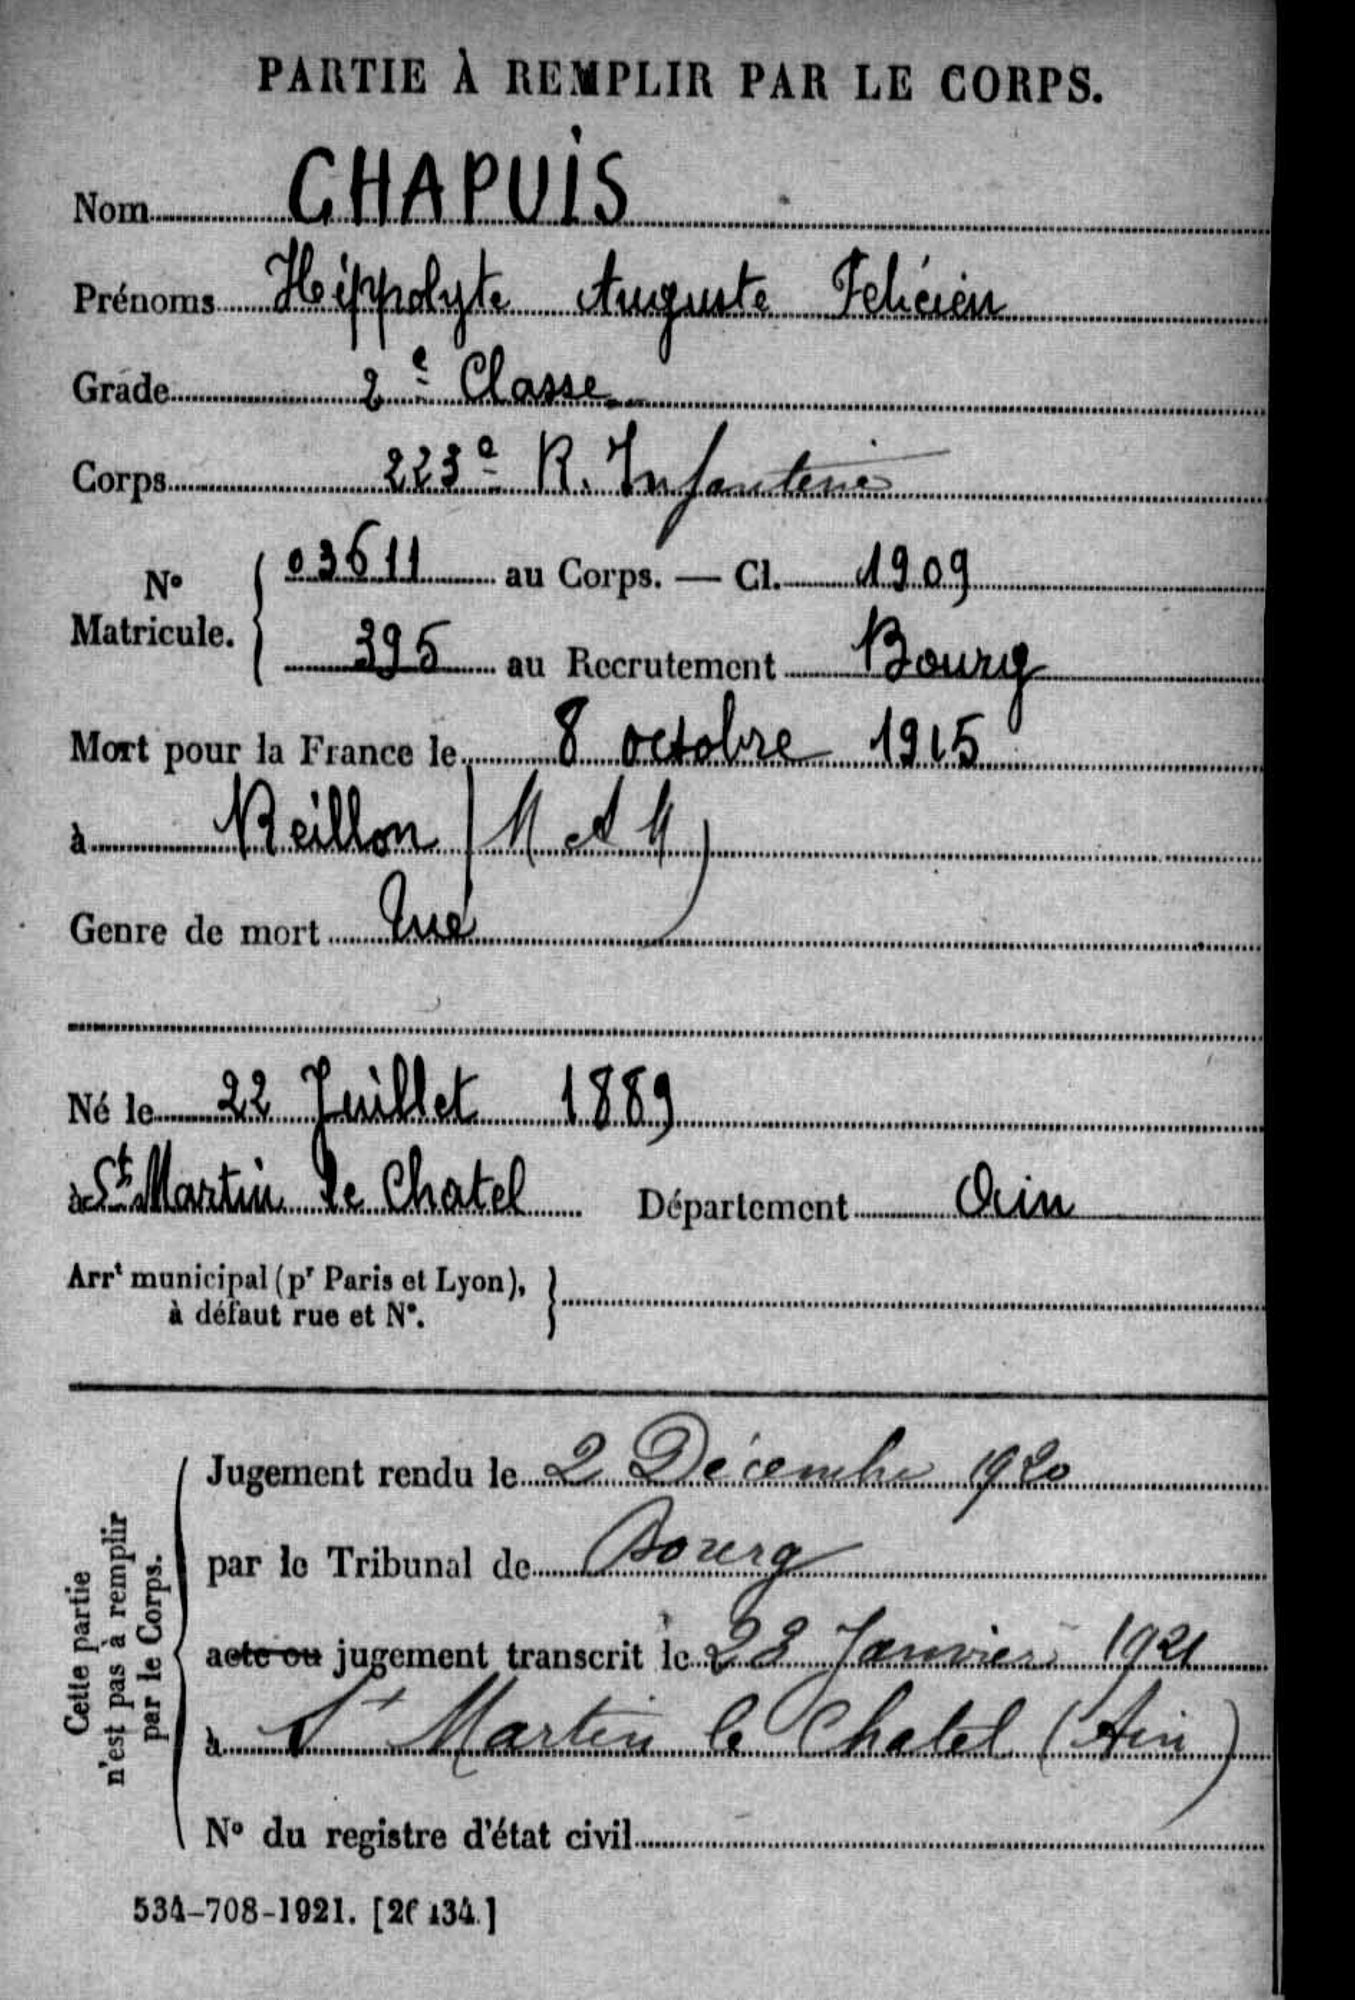 PARTIE À REMPLIR PAR LE CORPS.
Nom CHAPUIS
Prénoms Hippolyte Auguste Felicien
Grade 2e Classe
Corps 223e R. Infanterie
No Matricule. { 03611 au Corps. — Cl. 1909
395 au Recrutement Bourg
Mort pour la France le 8 octobre 1915
à Reillon (M et M)
Genre de mort Tué
Né le 22 Juillet 1889
à St Martin le Chatel Département Ain
Arrt municipal (pr Paris et Lyon),
à défaut rue et No.
Cette partie
n'est pas à remplir
par le Corps.
Jugement rendu le 2 Décembre 1920
par le Tribunal de Bourg
acte ou jugement transcrit le 23 Janvier 1921
à St Martin le Chatel (Ain)
No du registre d'état civil
534-708-1921. [26134.]